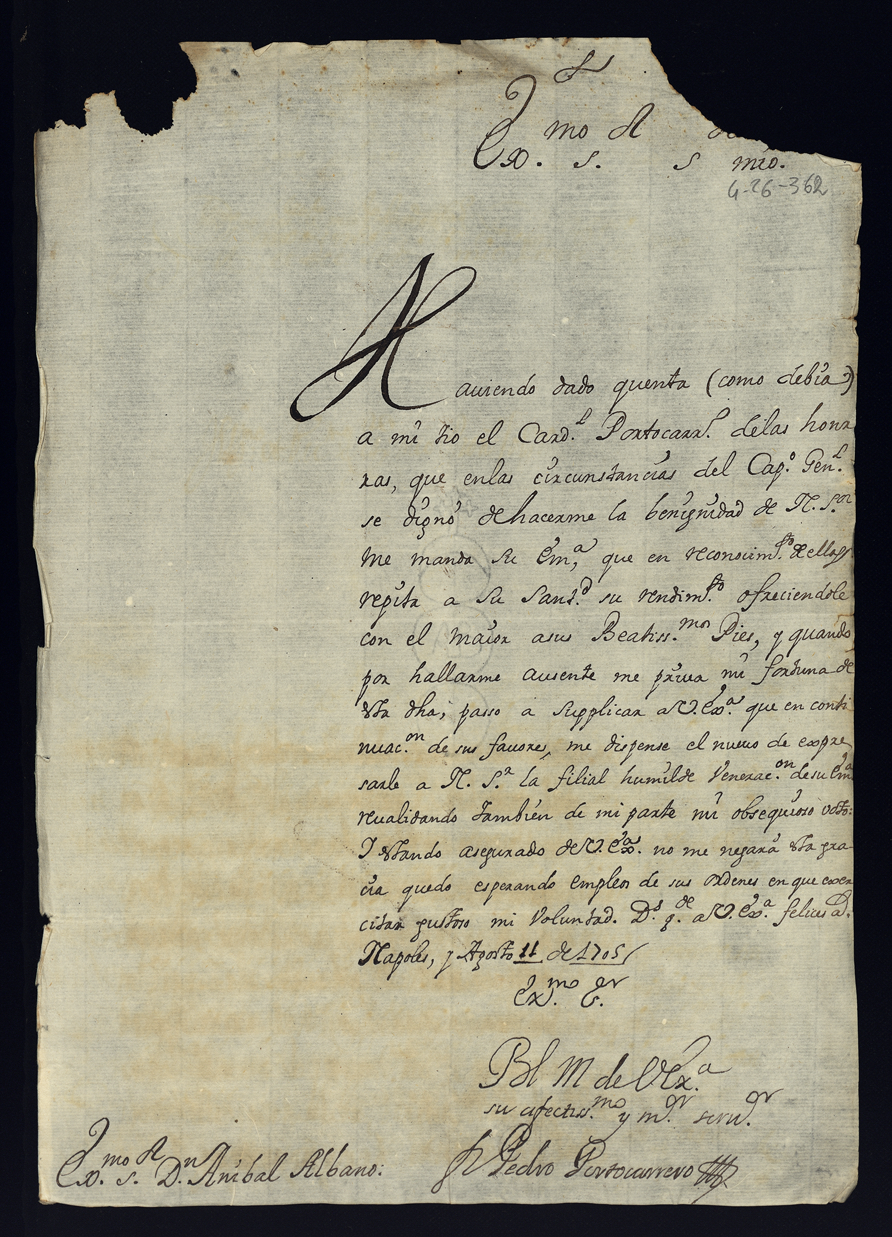 ✝
Ex.mo S.or S.or mio.
4-26-362
Hauiendo dado quenta (como debia)
a mi tio el Card.l Portocarr.o delas honr
ras, que enlas circunstancias del Cap.o Gen.l
se dignó dehacerme la benignidad de N. S.or
me manda Su Em.a, que en reconocim.to deellas
repita a Su Sant.d su rendim.to ofreciendole
con el maior asus Beatiss.mos Pies, y quando
por hallarme ausente me priua mi fortuna de
esta dha; passo a supplicar aV.Ex.a que en conti
nuac.on de sus fauores, me dispense el nueuo de expre
sarle a N. S.r la filial humilde Venerac.on desu Em.a
reualidando tambien de mi parte mi obsequioso voto:
Y estando asegurado deV.Ex.a no me negará esta gra
cia quedo esperando empleos de sus ordenes en que exer
citar gustoso mi Voluntad. D.s g.de aV.Ex.a felices a.s
Napoles, y Agosto 11 de 1705
Ex.mo S.or
Bl M de VEx.a
su afectiss.mo y m.or seru.or
Pedro Portocarrero
Ex.mo S.or D.n Anibal Albano: